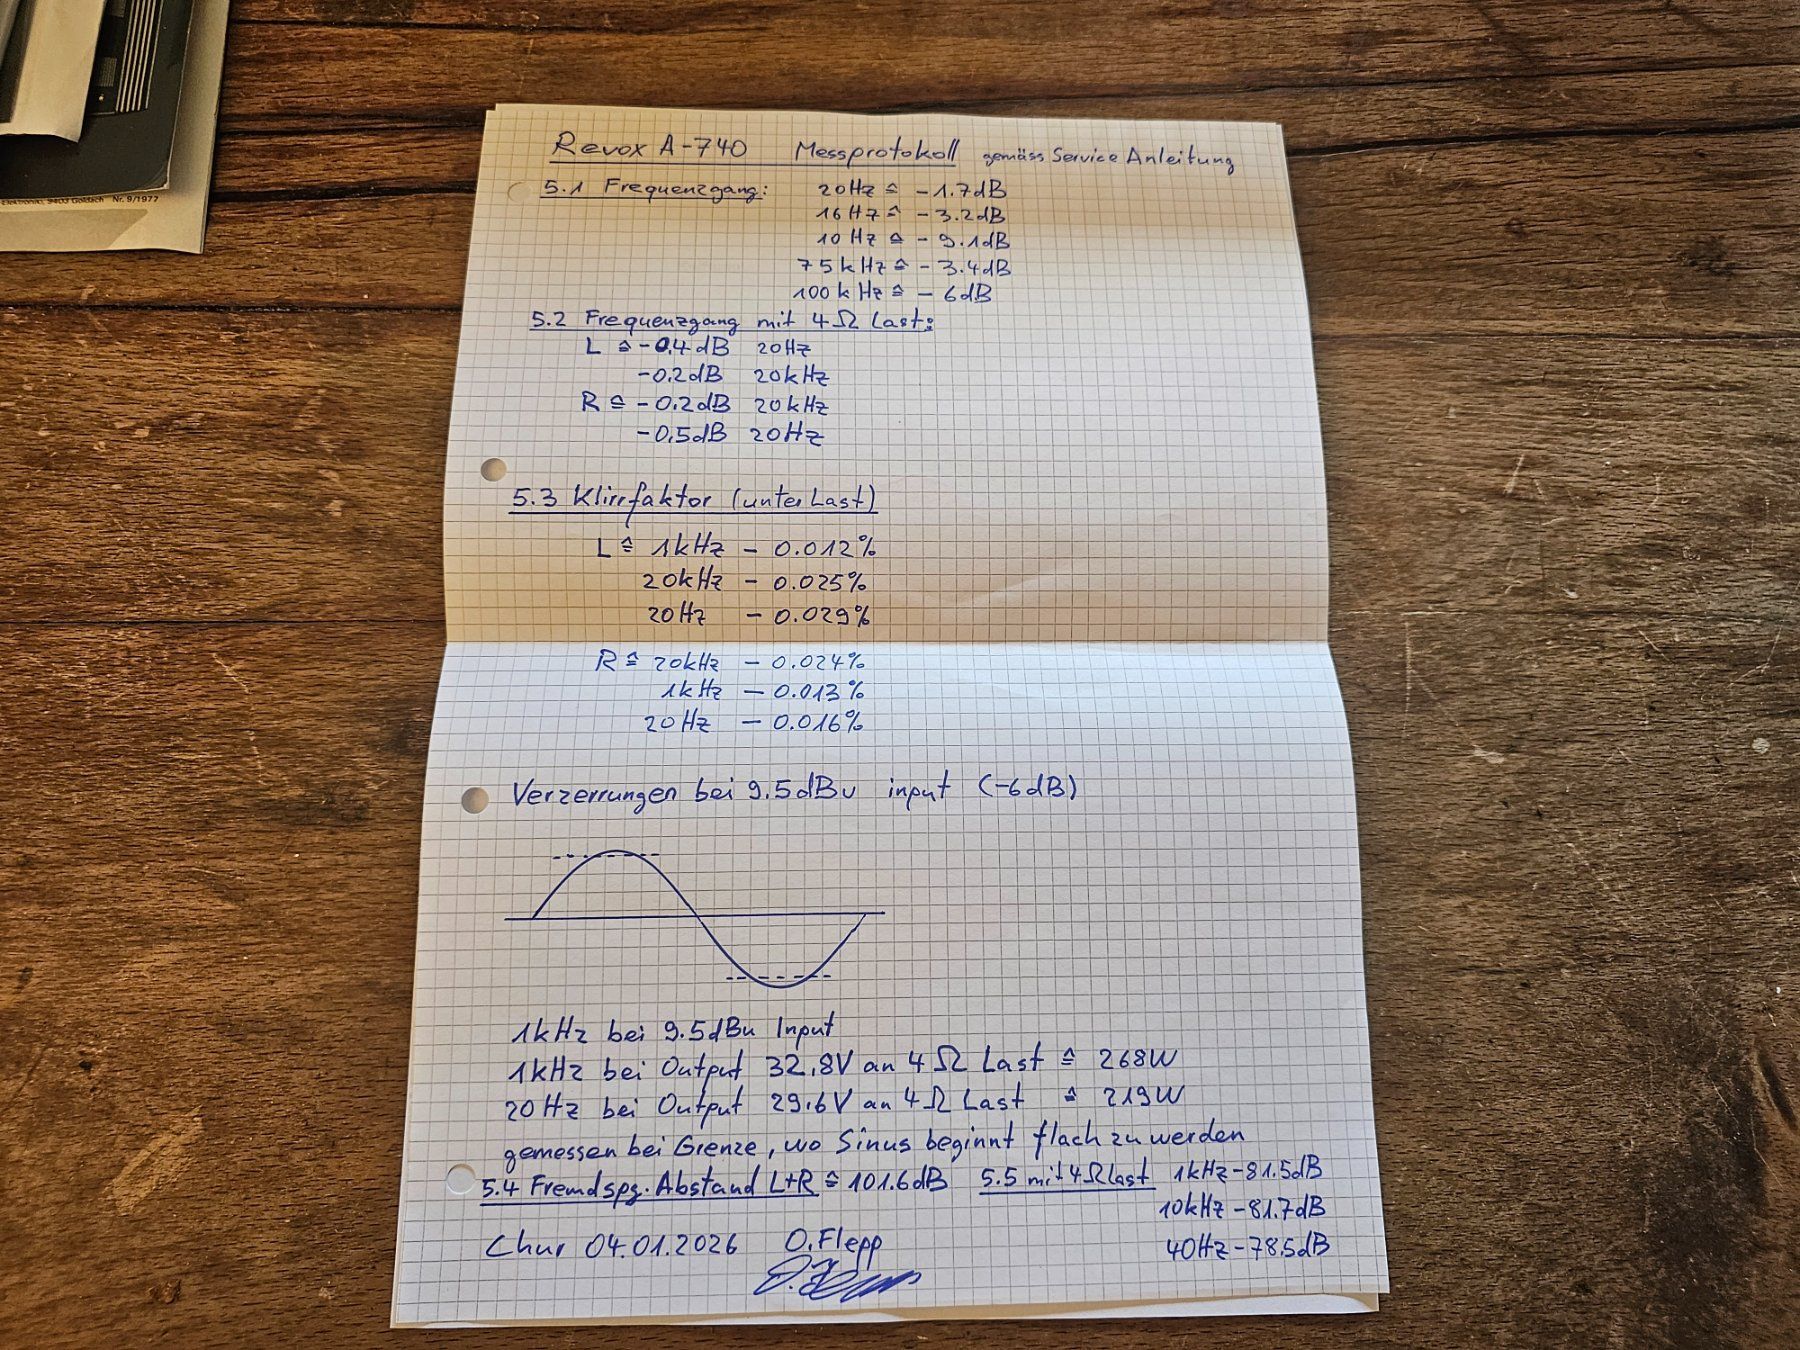 Elektronik, 9403 Goldach Nr. 9/1977
Revox A-740 Messprotokoll gemäss Service Anleitung
5.1 Frequenzgang: 20Hz ≙ -1.7dB
16Hz ≙ -3.2dB
10Hz ≙ -9.1dB
75kHz ≙ -3.4dB
100kHz ≙ -6dB
5.2 Frequenzgang mit 4Ω Last:
L ≙ -0.4dB 20Hz
-0.2dB 20kHz
R ≙ -0.2dB 20kHz
-0.5dB 20Hz
5.3 Klirrfaktor (unter Last)
L ≙ 1kHz - 0.012%
20kHz - 0.025%
20Hz - 0.029%
R ≙ 20kHz - 0.024%
1kHz - 0.013%
20Hz - 0.016%
Verzerrungen bei 9.5dBu input (-6dB)
1kHz bei 9.5dBu Input
1kHz bei Output 32.8V an 4Ω Last ≙ 268W
20Hz bei Output 29.6V an 4Ω Last ≙ 219W
gemessen bei Grenze, wo Sinus beginnt flach zu werden
5.4 Fremdspg. Abstand L+R ≙ 101.6dB 5.5 mit 4Ω last 1kHz -81.5dB
10kHz -81.7dB
Chur 04.01.2026 O.Flepp 40Hz -78.5dB